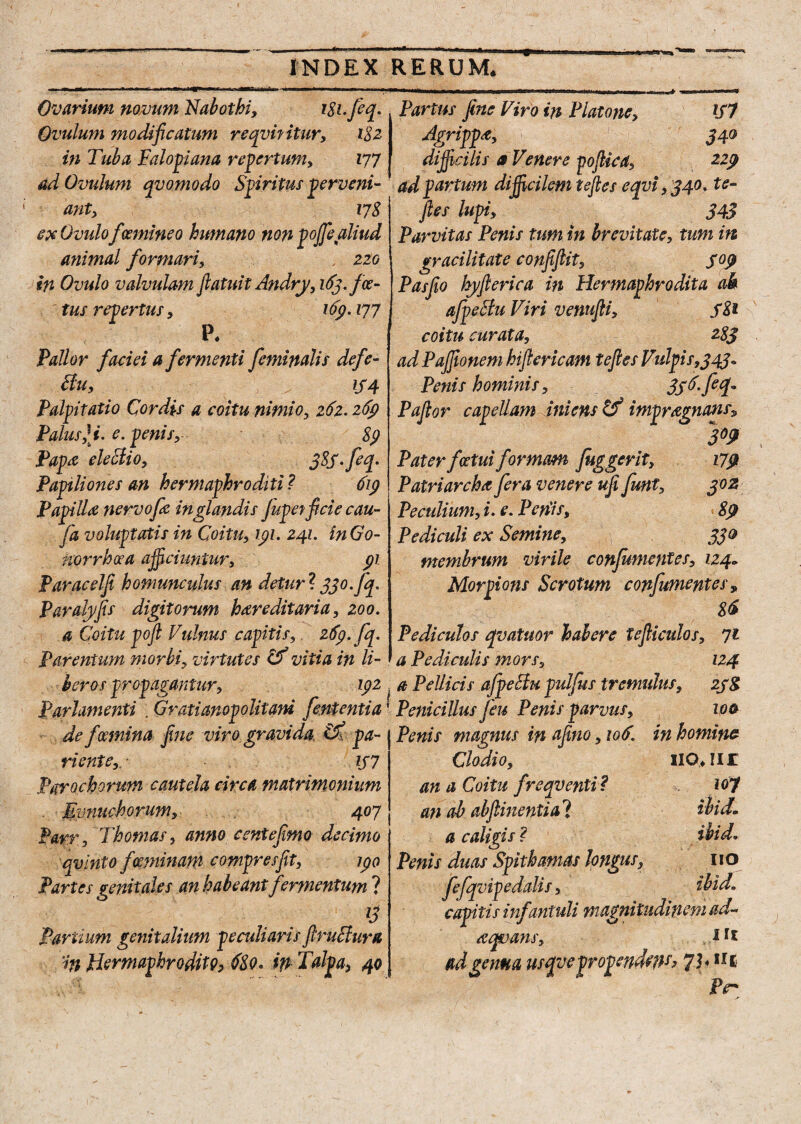 INDEX RERUM.
Ovarium novum Nabothi, 181. seq.
Ovulum modificatum reqviritur, 182
in Tuba Falopiana repertum, 177
ad Ovulum qvomodo Spiritus perveni-
ant, 178
ex Ovulo fœmineo humano non posse aliud
animal formari, 220
in Ovulo valvulam statuit Andry, 163. fœ-
tus repertus, 169. 177
P.
Pallor faciei a fermenti seminalis defe-
ctu, 154
Palpitatio Cordis a coitu nimio, 262. 269
Palus, i. e. penis, 89
Papæ electio, 385. seq.
Papiliones an hermaphroditi? 619
Papillæ nervosæ in glandis superficie cau-
sa voluptatis in Coitu, 191. 241. in Go-
norrhœa afficiuntur, 91
Paracelsi homunculus an detur? 330. sq.
Paralysis digitorum hæreditaria, 200.
a Coitu post Vulnus capitis, 269. sq.
Parentum morbi, virtutes & vitia in li-
beros propagantur, 192
Parlamenti Gratianopolitani sententia
de fœmina sine viro gravida & pa-
riente, 157
Parochorum cautela circa matrimonium
Evnuchorum, 407
Parr, Thomas, anno centesimo decimo
qvinto fœminam compressit, 190
Partes genitales an habeant fermentum?
13
Partium genitalium peculiaris structura
in Hermaphrodito, 680. in Talpa, 40
Partus sine Viro in Platone, 157
Agrippæ, 340
difficilis a Venere postica, 229
ad partum difficilem testes eqvi, 340. te-
stes lupi, 343
Parvitas Penis tum in brevitate, tum in
gracilitate consistit, 509
Passio hysterica in Hermaphrodita ab
aspectu Viri venusti, 581
coitu curata, 283
ad Passionem histericam testes Vulpis, 343.
Penis hominis, 356. seq.
Pastor capellam iniens & imprægnans,
309
Pater fœtui formam suggerit, 179
Patriarchæ sera venere usi sunt, 302
Peculium, i. e. Penis, 89
Pediculi ex Semine, 330
membrum virile consumentes, 124.
Morpions Scrotum consumentes,
86
Pediculos qvatuor habere testiculos, 71
a Pediculis mors, 124
a Pellicis aspectu pulsus tremulus, 258
Penicillus seu Penis parvus, 100
Penis magnus in asino, 106. in homine
Clodio, 110. 111
an a Coitu freqventi? 107
an ab abstinentia? ibid.
a caligis? ibid.
Penis duas Spithamas longus, 110
sesqvipedalis, ibid.
capitis infantuli magnitudinem ad-
æqvans, 111
ad genua usqve propendens, 73. 111
Pe-